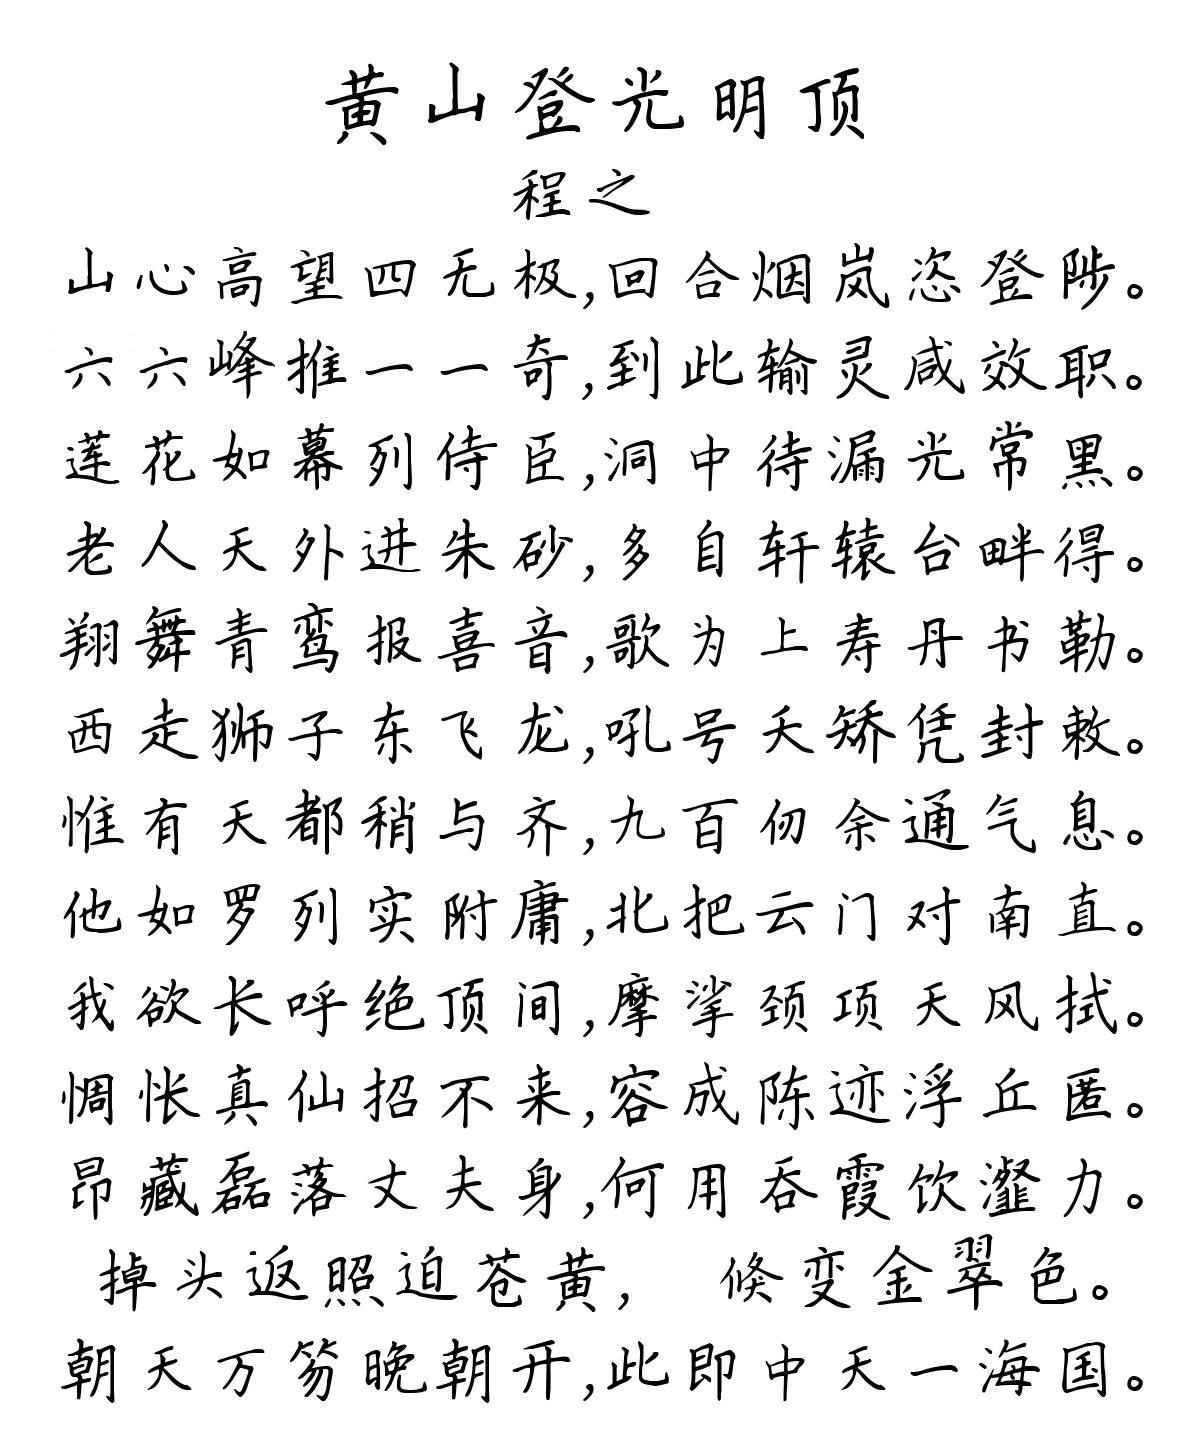 黄山登光明顶
程之
山心高望四无极,回合烟岚恣登陟。
六六峰推一一奇,到此输灵咸效职。
莲花如幕列侍臣,洞中待漏光常黑。
老人天外进朱砂,多自轩辕台畔得。
翔舞青鸾报喜音,歌为上寿丹书勒。
西走狮子东飞龙,吼号夭矫凭封敕。
惟有天都稍与齐,九百仞余通气息。
他如罗列实附庸,北把云门对南直。
我欲长呼绝顶间,摩挲颈项天风拭。
惆怅真仙招不来,容成陈迹浮丘匿。
昂藏磊落丈夫身,何用吞霞饮瀣力。
掉头返照迫苍黄, 倏变金翠色。
朝天万笏晚朝开,此即中天一海国。